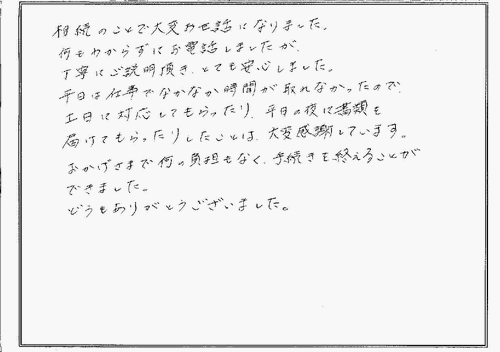 相続のことで大変お世話になりました。
何もわからずにお電話しましたが、
丁寧にご説明頂き、とても安心しました。
平日は仕事でなかなか時間が取れなかったので、
土日に対応してもらったり、平日の夜に書類を
届けてもらったりしたことは、大変感謝しています。
おかげさまで何の負担もなく、手続きを終えることが
できました。
どうもありがとうございました。